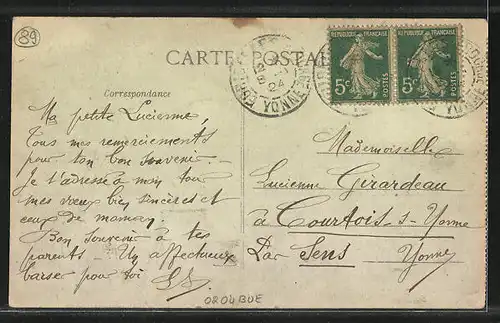 89
CARTE POSTALE
RÉPUBLIQUE FRANÇAISE
5c POSTES
RÉPUBLIQUE FRANÇAISE
5c POSTES
YONNE
24
Correspondance
Ma petite Lucienne,
Tous mes remerciements
pour ton bon souvenir –
Je t'adresse à mon tour
mes vœux bien sincères et
ceux de maman.
Bon souvenir à tes
parents – Un affectueux
baiser pour toi
Mademoiselle
Lucienne Girardeau
à Courtois-s-Yonne
Par Sens Yonne